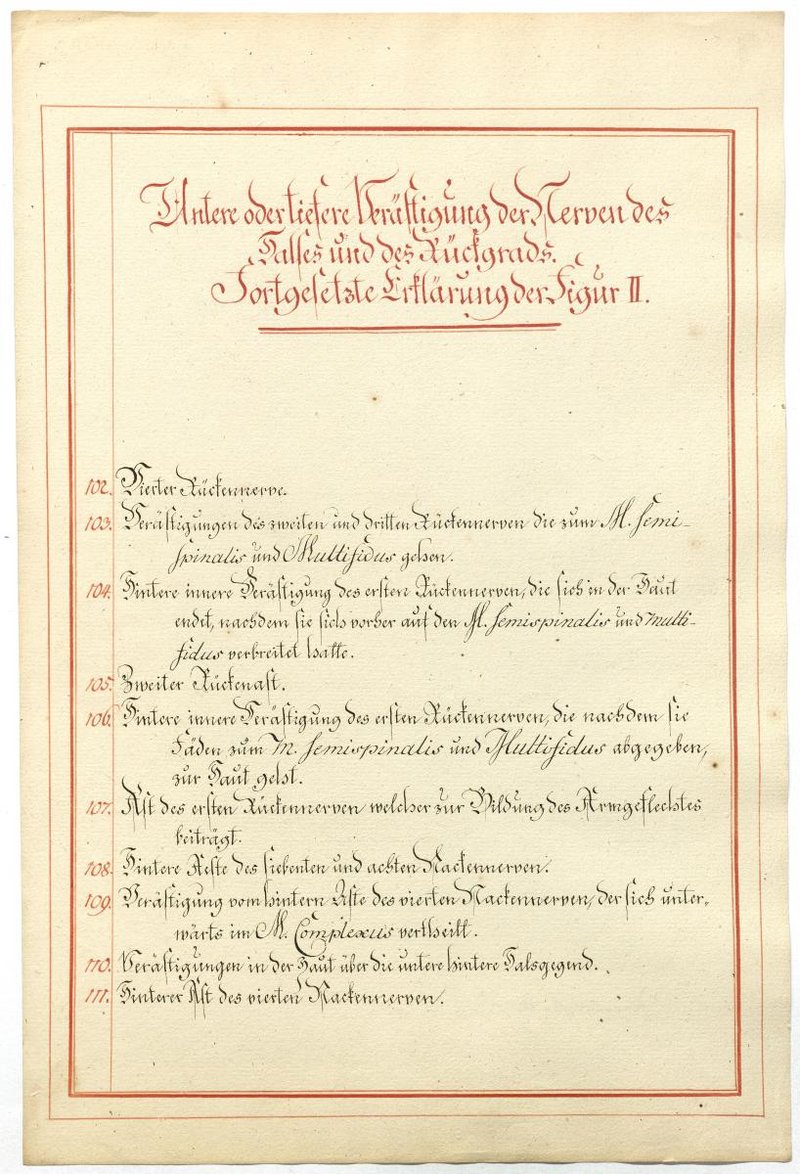 Untere oder tiefere Verästigung der Nerven des
Halses und des Rückgrads.
Fortgesetzte Erklärung der Figur II.
102. Vierter Rückennerve.
103. Verästigungen des zweiten und dritten Rückennerven die zum M. semi-
spinalis und Multifidus gehen.
104. Hintere innere Verästigung des ersten Rückennerven, die sich in der Haut
endet, nachdem sie sich vorher auf den M. semispinalis und multi-
fidus verbreitet hatte.
105. Zweiter Rückenast.
106. Hintere innere Verästigung des ersten Rückennerven, die nachdem sie
Fäden zum m. semispinalis und Multifidus abgegeben,
zur Haut geht.
107. Ast des ersten Rückennerven welcher zur Bildung des Armgeflechtes
beiträgt.
108. Hintere Aeste des siebenten und achten Nackennerven.
109. Verästigung vom hintern Aste des vierten Nackennerven, der sich unter-
wärts im M. Complexus vertheilt.
110. Verästigungen in der Haut über die untere hintere Halsgegend.
111. Hinterer Ast des vierten Nackennerven.